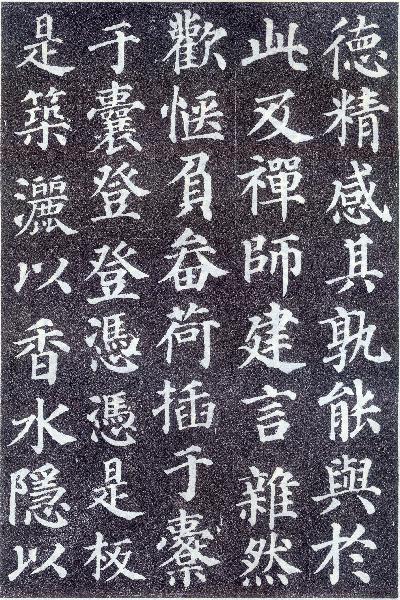 德精感其孰能與於
此及禪師建言雜然
歡愜負畚荷插于橐
于囊登登憑憑是板
是築灑以香水隱以